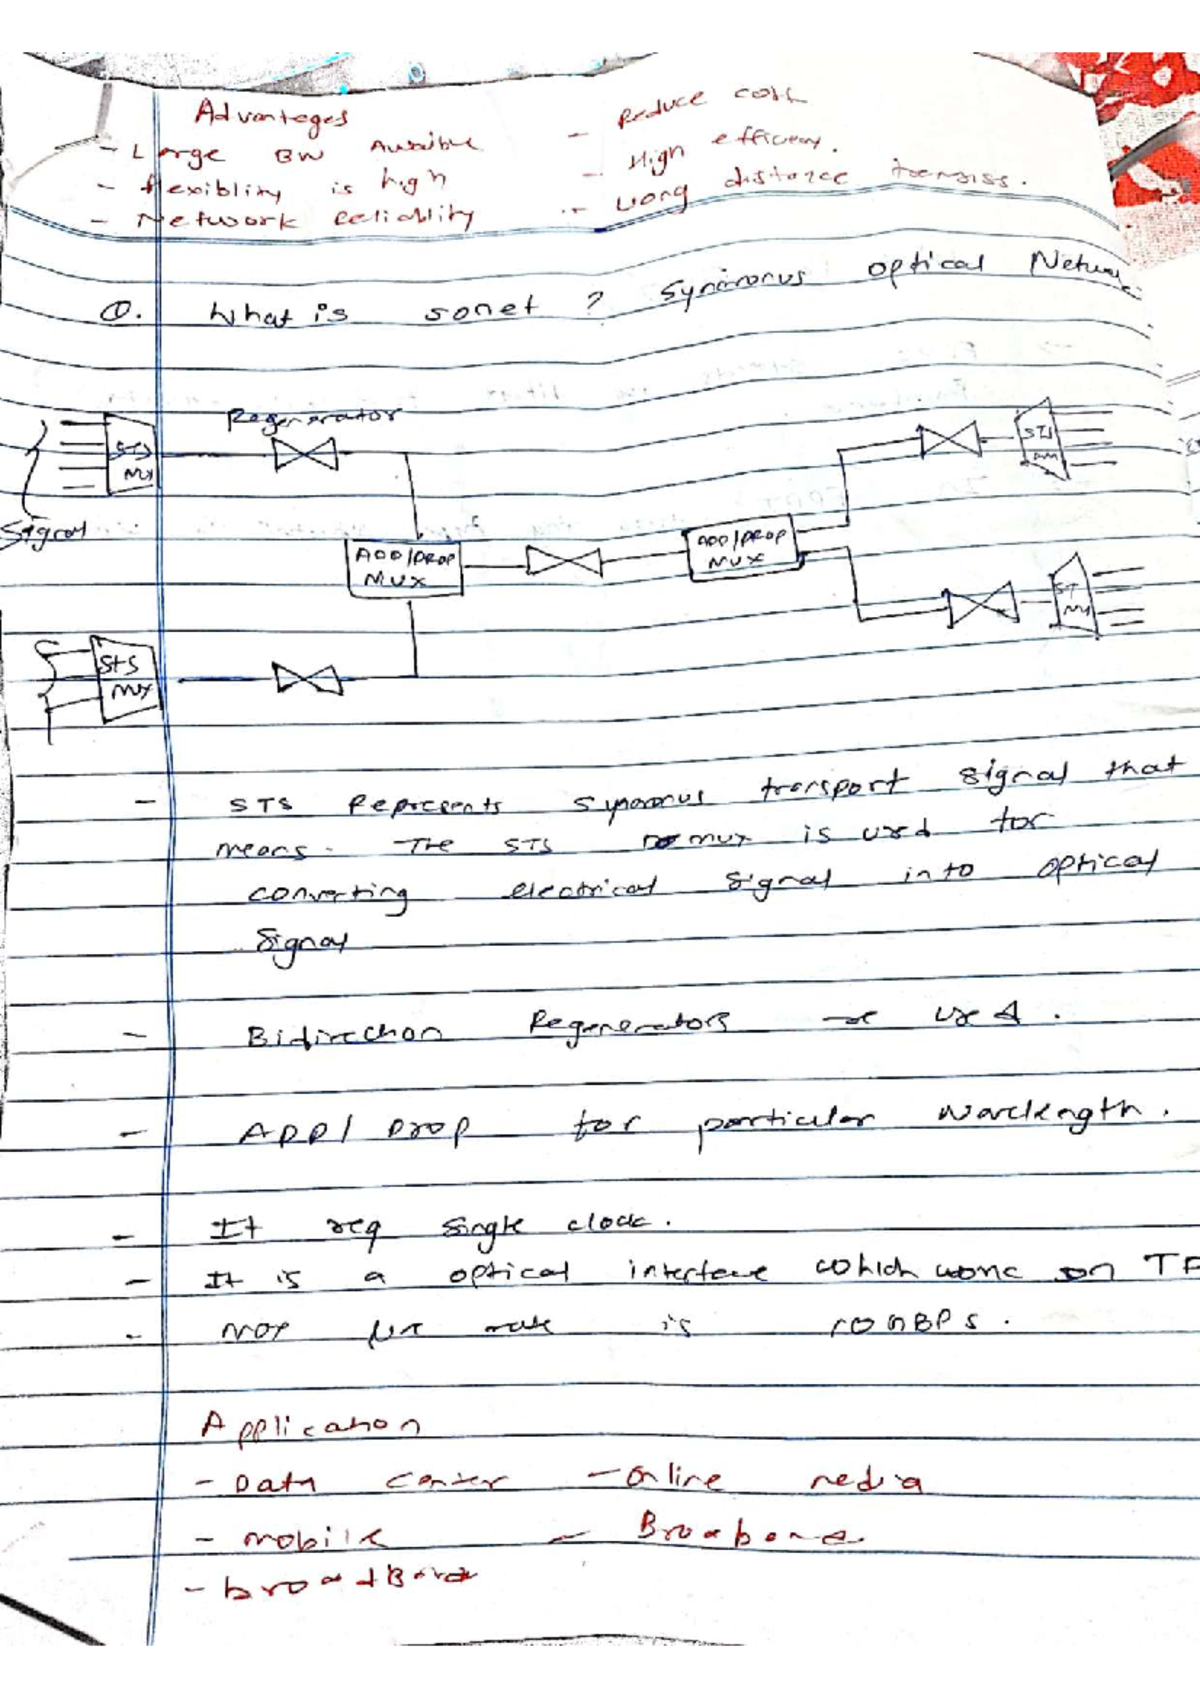 Advanteges
- Large BW Avaible
- flexiblity is high
- Network Reliablity
- Reduce cost
- High efficeny.
- Long distance transmiss.
Q. What is sonet ? Synronus optical Networ
Regenerator
STS
MUX
Signal
ADD/DROP
MUX
ADD/DROP
MUX
STS
ST
MUX
STS
MUX
- STS Represents Synronus transport signal that
means. The STS mux is used for
converting electrical signal into optical
signal
- Bidirection Regenerators are used.
- ADD/ Drop for particular wavelength.
- It req single clock.
- It is a optical interface which work on TF
- max rate is 10 GBPS.
Application
- Data center - online media
- mobile - Broabond
- broadBand